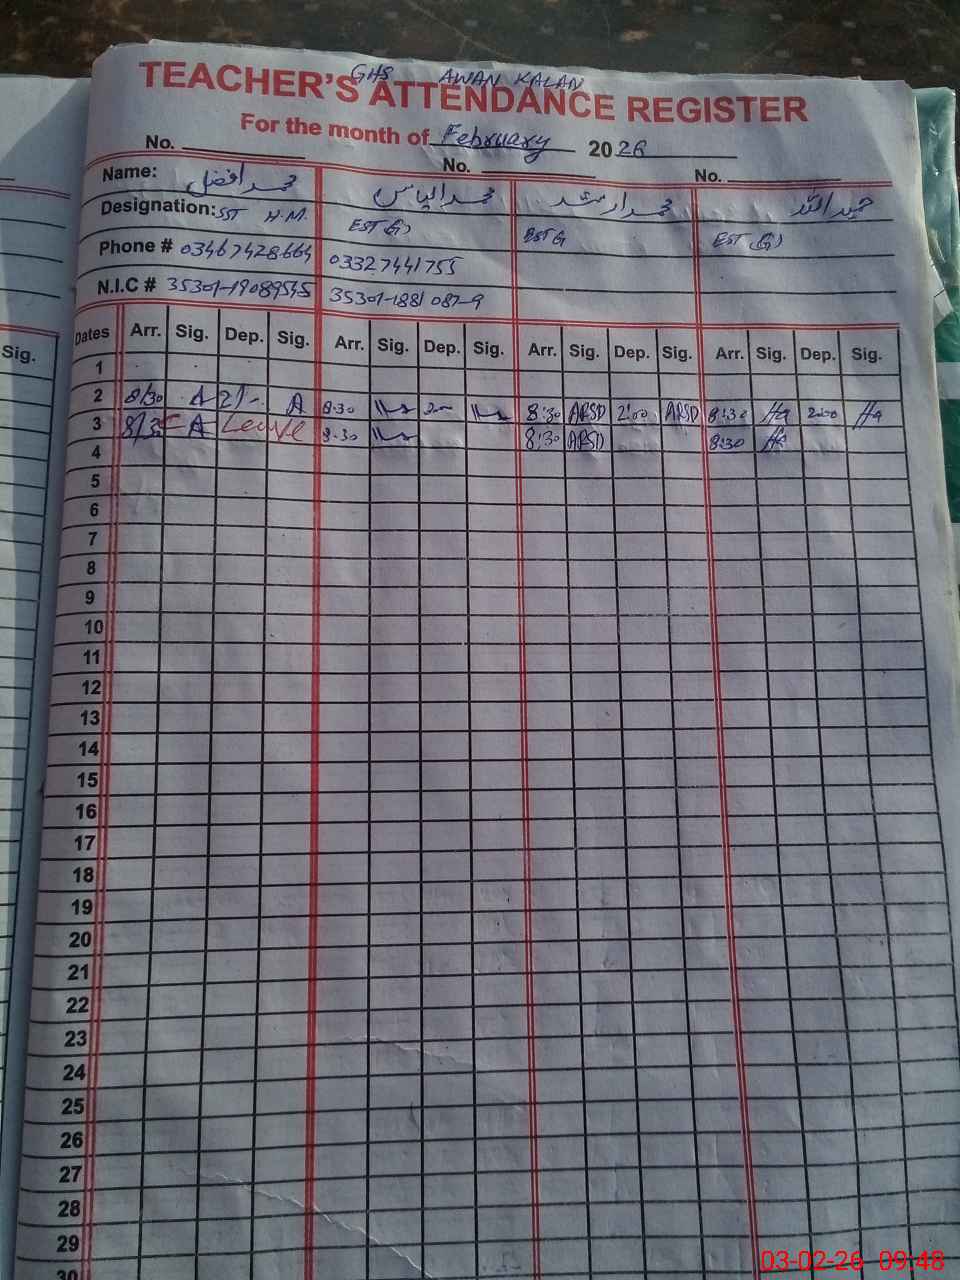 GHS AWAN KALAN
TEACHER'S ATTENDANCE REGISTER
For the month of February 2026
No. No. No.
Name: محمد افضل محمد الیاس محمد ارشد حمید اللہ
Designation: SST H.M. EST (G) EST G EST (G)
Phone # 03467428664 03327441755
N.I.C # 35301-1881087-9
Sig.
Dates Arr. Sig. Dep. Sig. Arr. Sig. Dep. Sig. Arr. Sig. Dep. Sig. Arr. Sig. Dep. Sig.
1
2 8/30 A 2/- A 8:30 8:30 ARSD 2:00 ARSD 8:30 Ha 2:00 Ha
3 8/30 A Leave 8:30 8:30 ARSD 8:30 Ha
4
5
6
7
8
9
10
11
12
13
14
15
16
17
18
19
20
21
22
23
24
25
26
27
28
29
30
03-02-26 09:48